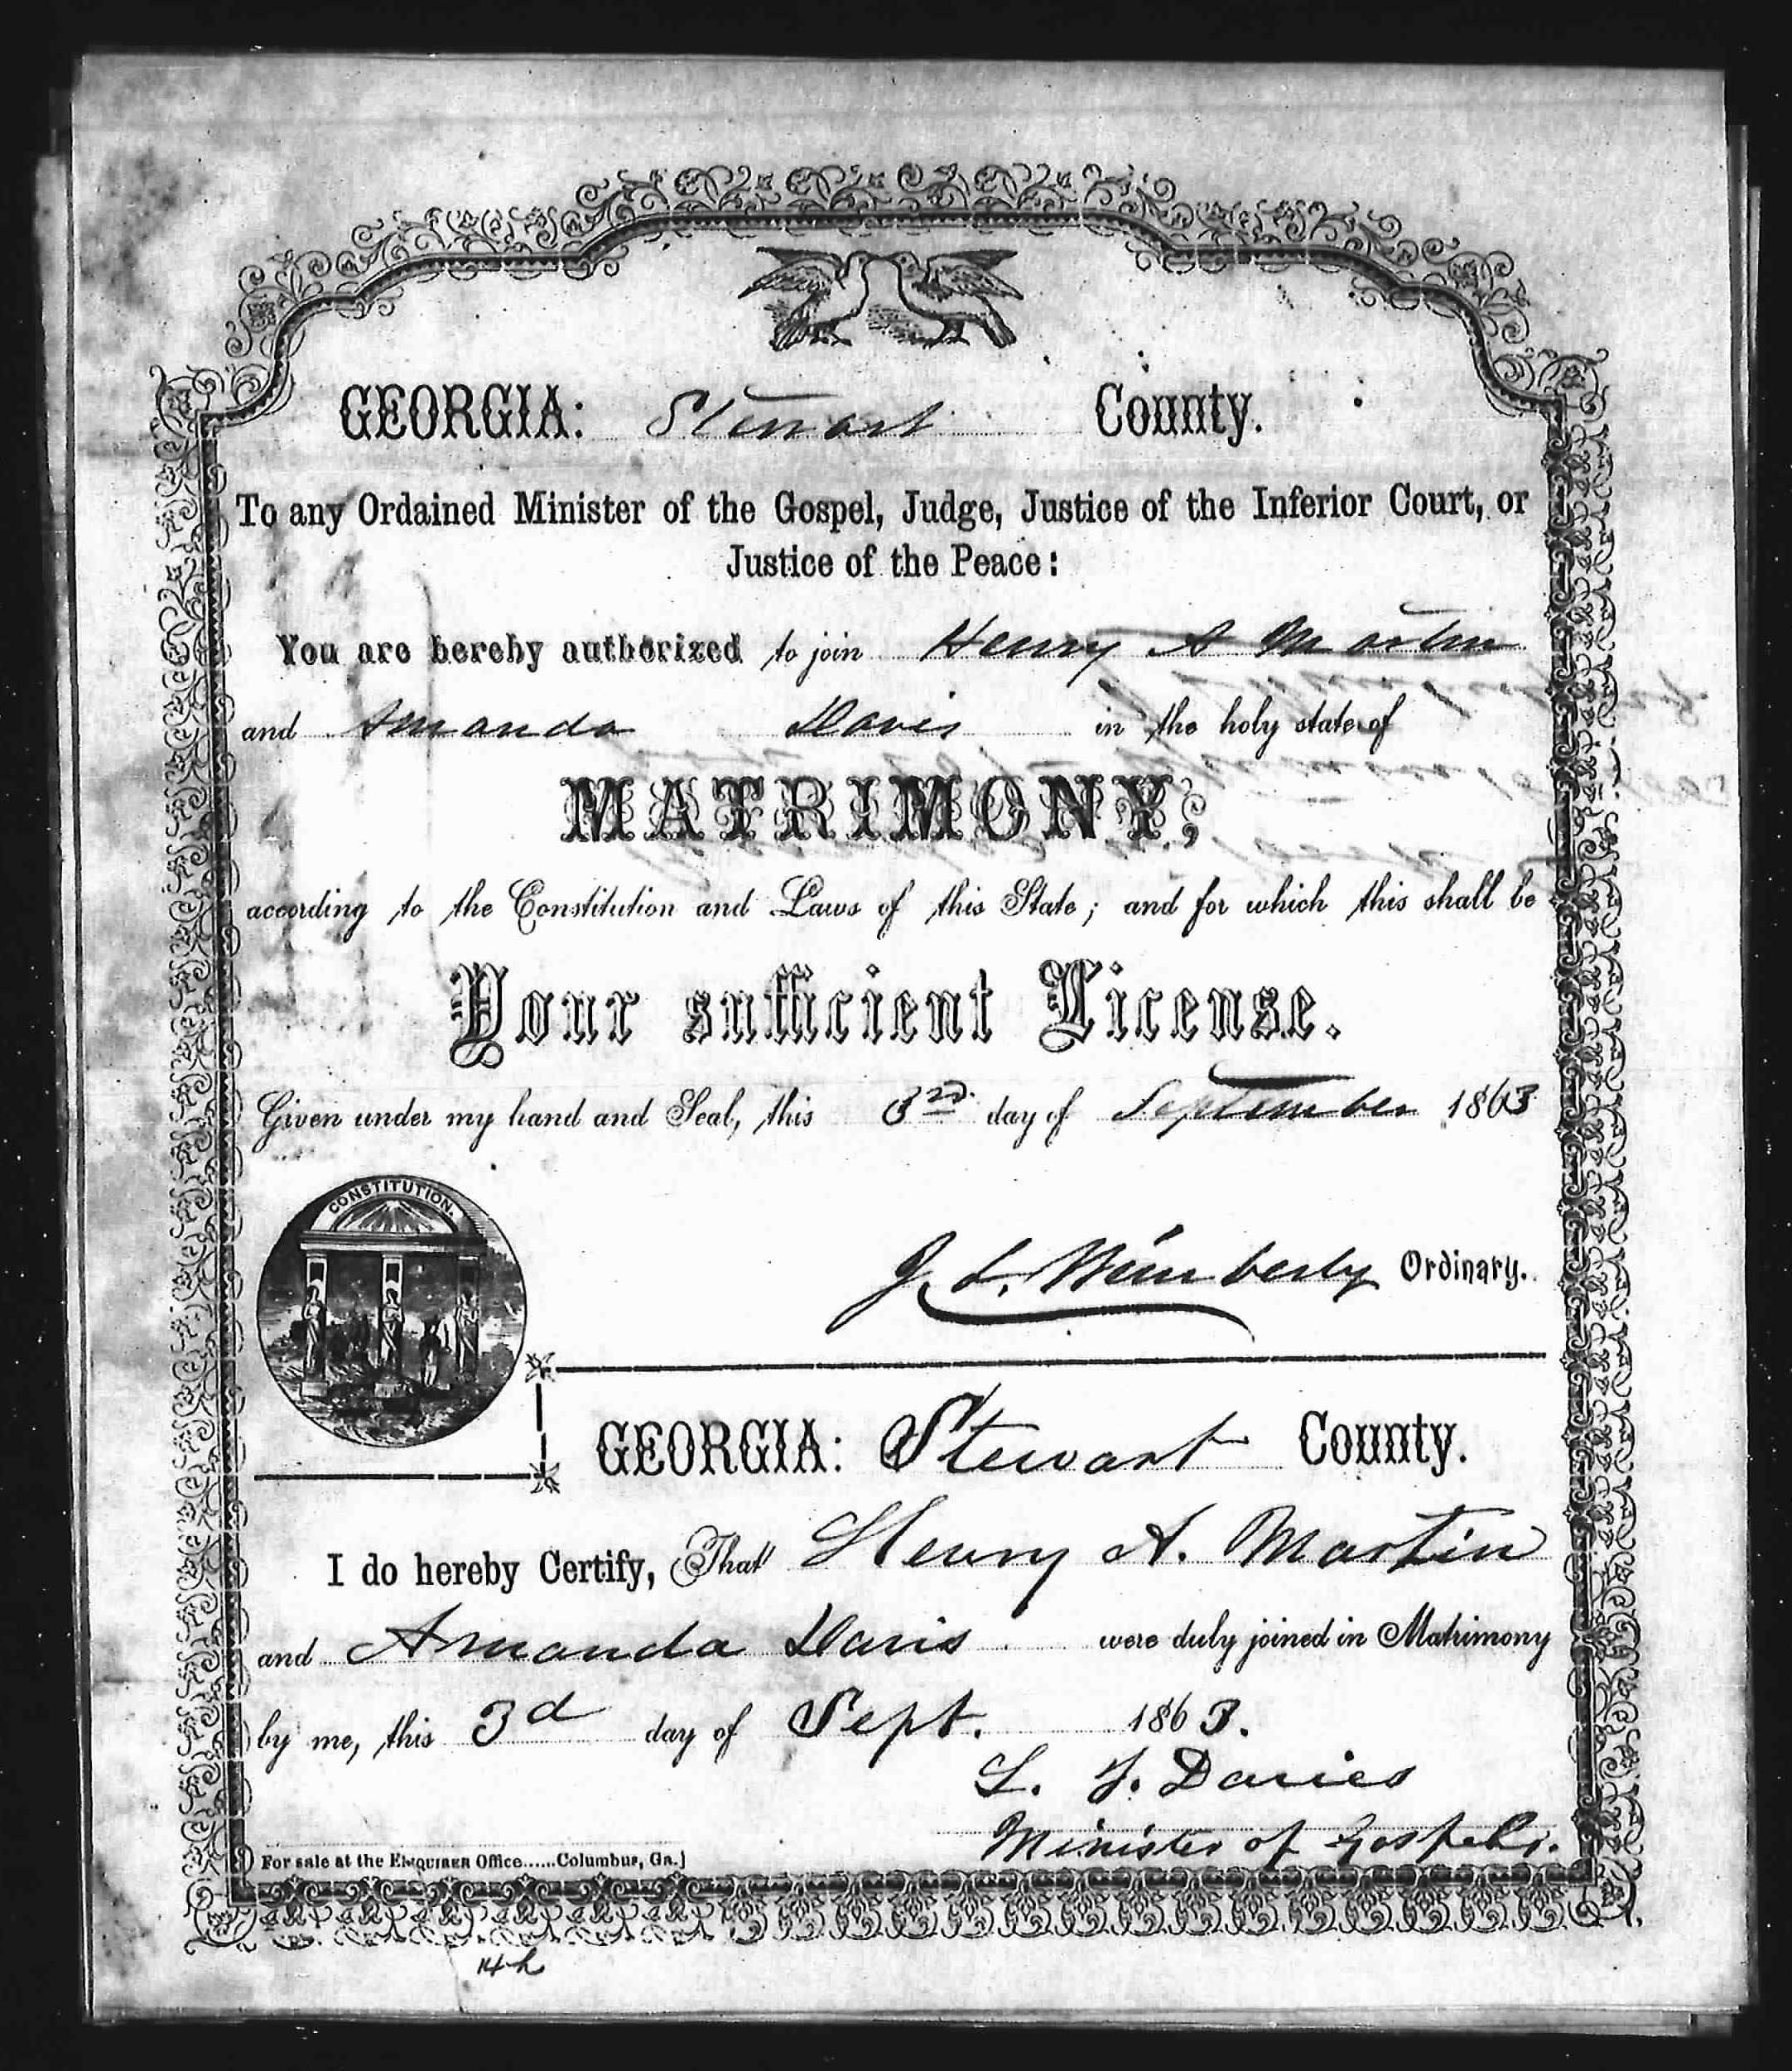 GEORGIA: Stewart County.
To any Ordained Minister of the Gospel, Judge, Justice of the Inferior Court, or
Justice of the Peace:
You are hereby authorized to join Henry A Martin
and Amanda Davis in the holy state of
MATRIMONY,
according to the Constitution and Laws of this State; and for which this shall be
Your sufficient License.
Given under my hand and Seal, this 3rd day of September 1863
CONSTITUTION.
J. L. Wimberly Ordinary.
GEORGIA: Stewart County.
I do hereby Certify, That Henry A. Martin
and Amanda Davis were duly joined in Matrimony
by me, this 3d day of Sept. 1863.
Davies
Minister of
For sale at the ENQUIRER Office......Columbus, Ga.]